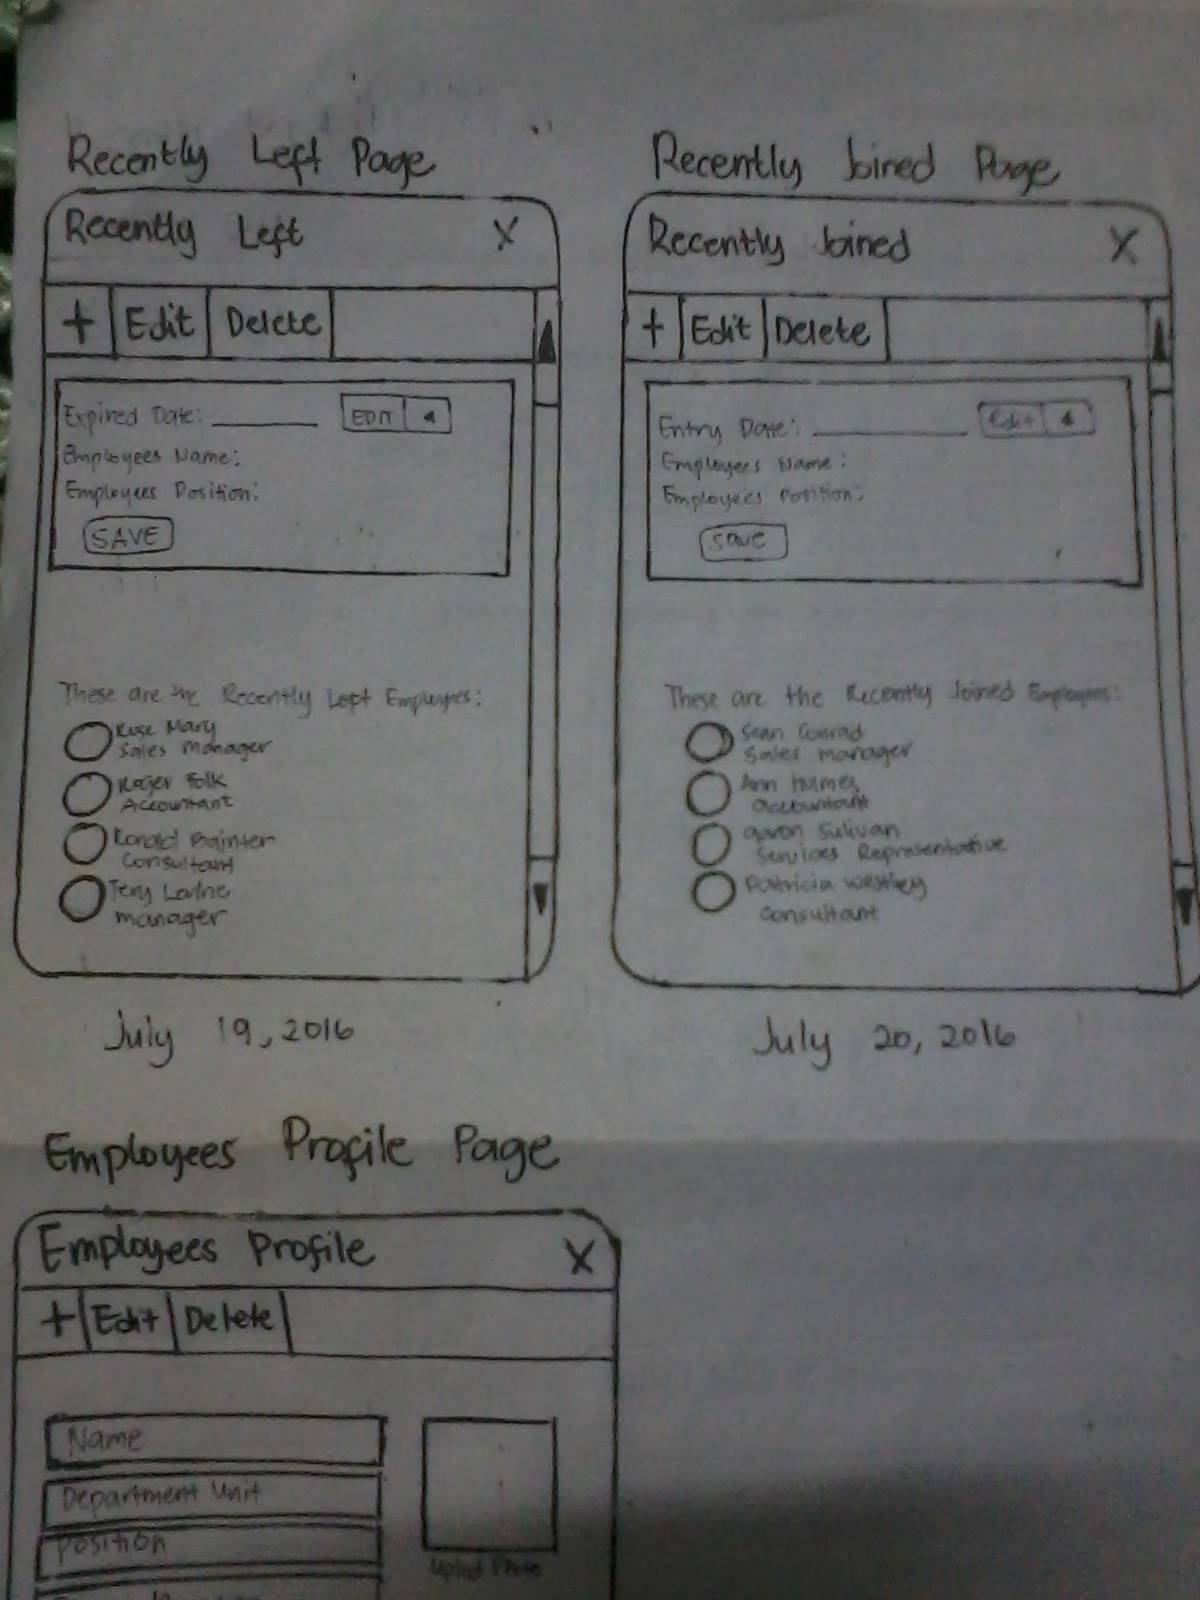 Recently Left Page
Recently Left X
+ Edit Delete
Expired Date: EDIT
Employees Name:
Employees Position:
SAVE
These are the Recently Left Employees:
Rose Mary
Sales manager
Roger Folk
Accountant
Ronald Bainter
Consultant
Tery
manager
July 19, 2016
Recently Joined Page
Recently Joined X
+ Edit Delete
Entry Date: Edit
Employees Name:
Employees Position:
Save
These are the Recently Joined Employees:
Sean Conrad
Sales manager
Ann Holmes
accountant
Sulivan
Services Representative
Patricia Westley
Consultant
July 20, 2016
Employees Profile Page
Employees Profile X
+ Edit Delete
Name
Department Unit
Position
Upload Photo